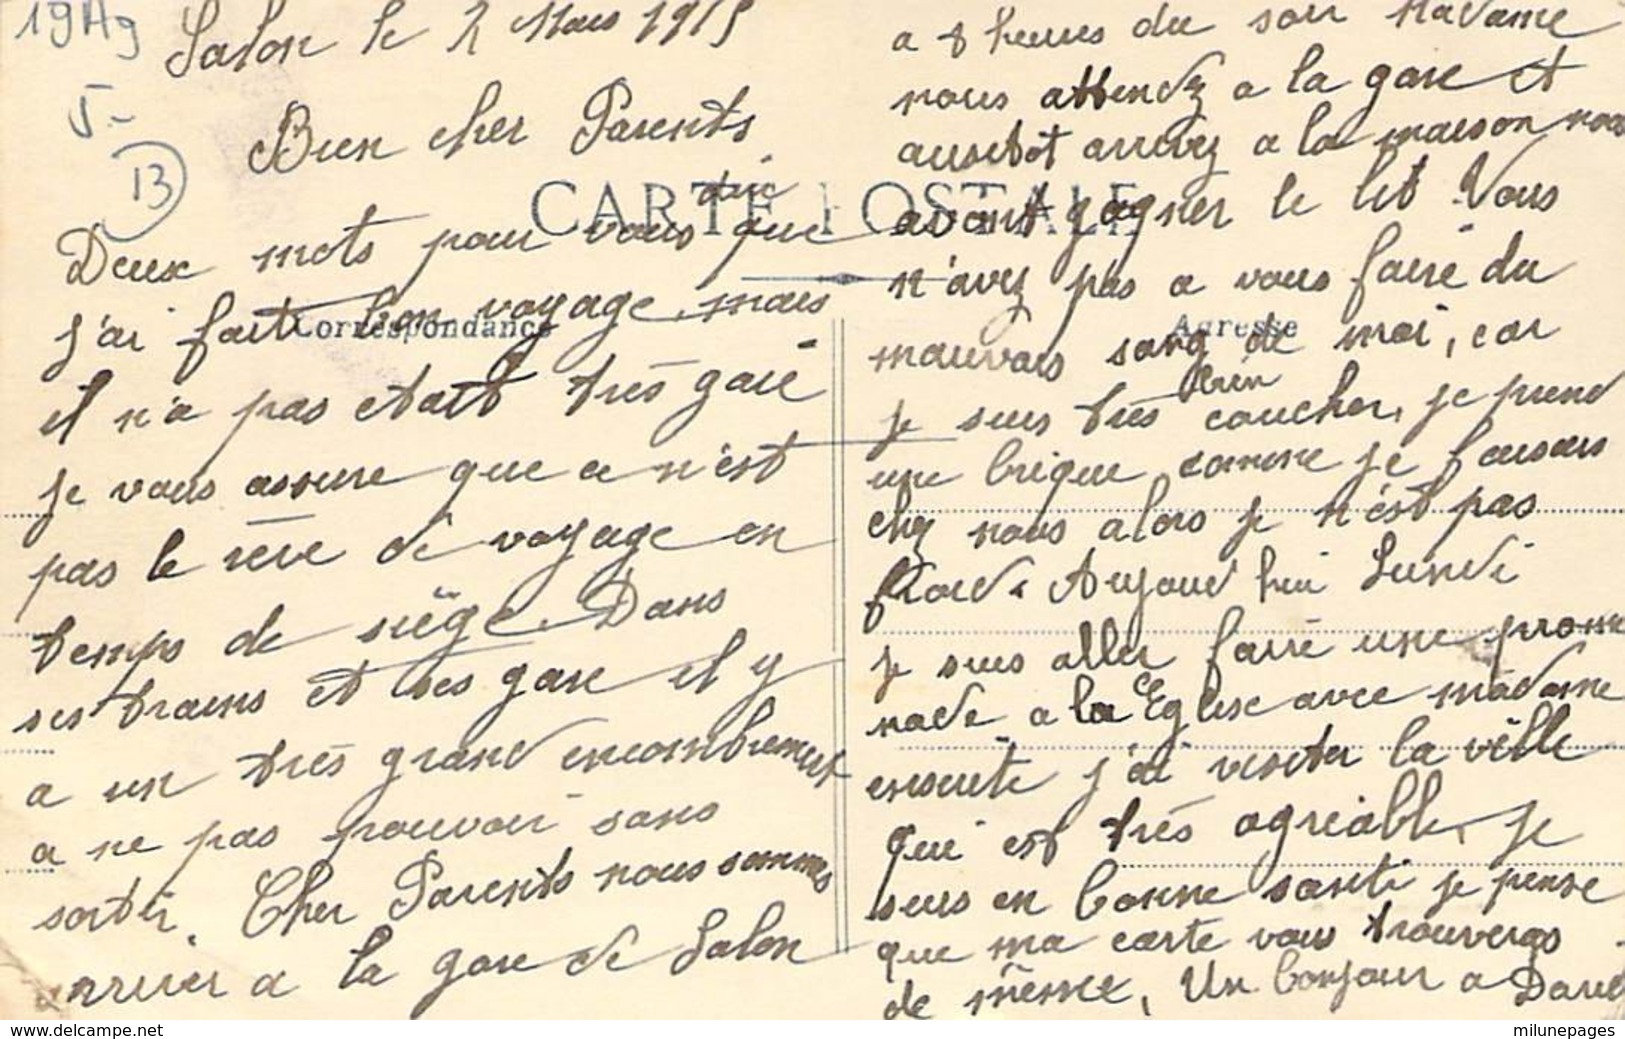 19Hg
5-
13
Salon le 2 Mars 1915
Bien cher Parents
CARTE POSTALE
Correspondance
Adresse
Deux mots pour vous dire que
j'ai fait bon voyage, mais
il n'a pas etait très gaie
je vous assure que ce n'est
pas le rêve de voyage en
temps de siège. Dans
ses trains et ses gare il y
a un très grand encombrement
a ne pas pouvoir sans
sortir. Cher Parents nous sommes
arriver a la gare de Salon
a 8 heures du soir Madame
nous attendez a la gare et
ausitot arrivez a la maison nous
avont gagner le lit. Vous
n'avez pas a vous faire du
mauvais sang de moi, car
je suis très bien coucher, je prend
une brique comme je faisais
chez nous alors je n'est pas
froid. Aujourd hui Lundi
je suis aller faire une prome
nade a la Eglise avec madame
ensuite j'ai visiter la ville
qui est très agréable, je
suis en bonne santé je pense
que ma carte vous trouveras
de même, Un bonjour a David
© delcampe.net
milunepages